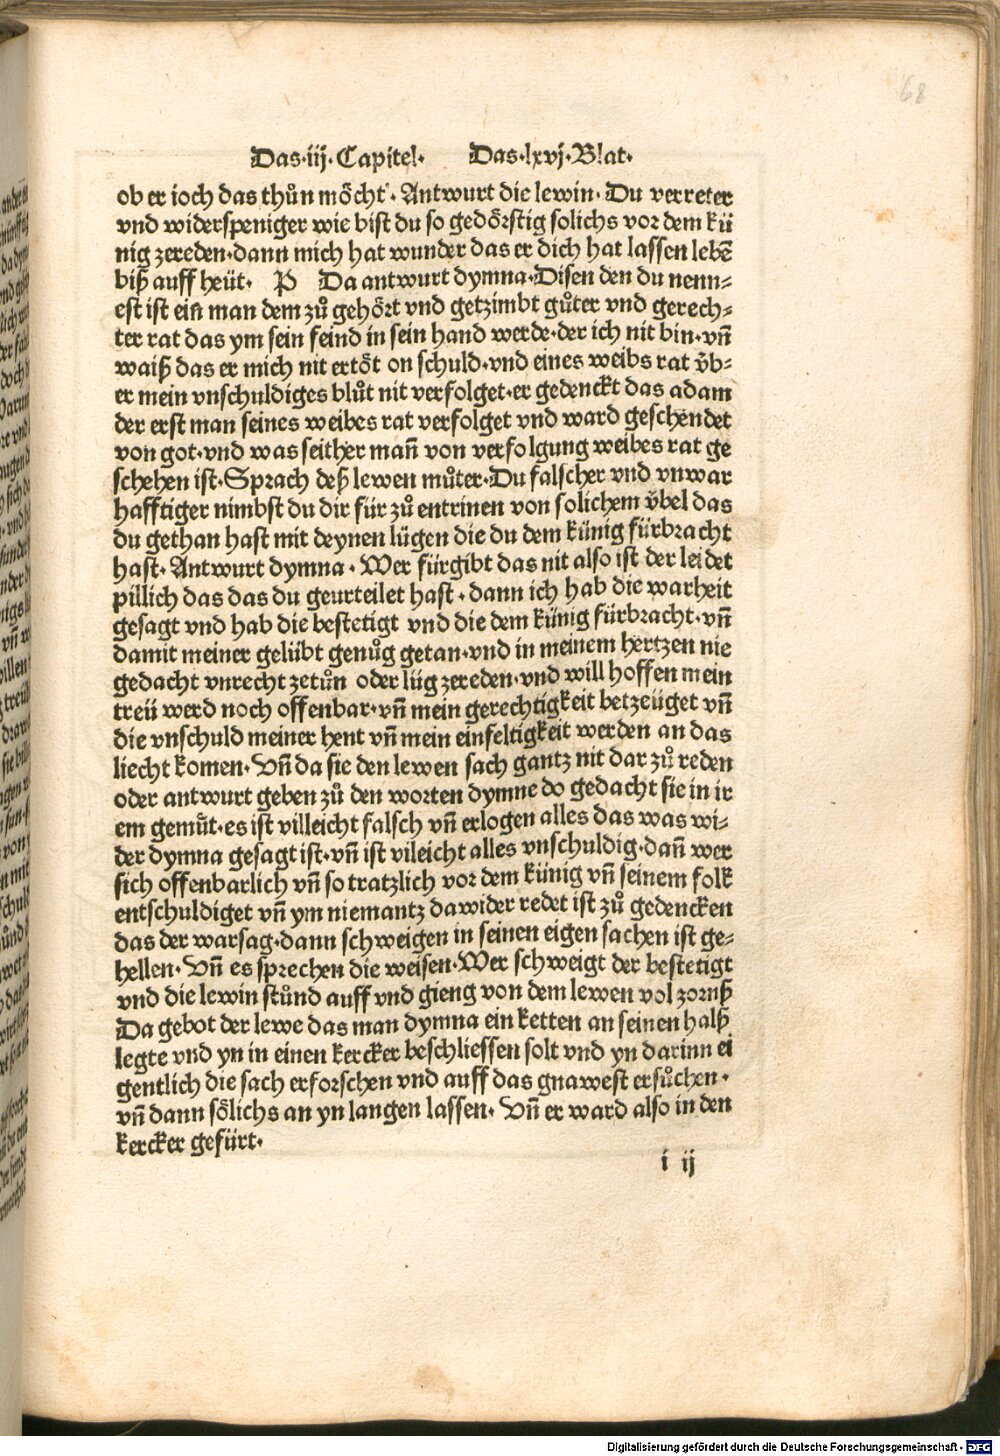 68
Das·iij·Capitel· Das·lxvj·Blat·
ob er ioch das thůn möcht·Antwurt die lewin·Du verreter
vnd widerspeniger wie bist du so gedörstig solichs vor dem kü
nig zereden·dann mich hat wunder das er dich hat lassen lebē
biß auff heüt· P Da antwurt dymna·Disen den du nenn⸗
est ist ein̄ man dem zů gehört vnd getzimbt gůter vnd gerech⸗
ter rat das ym sein feind in sein hand werde·der ich nit bin·vn̄
waiß das er mich nit ertöt on schuld·vnd eines weibs rat v̈b⸗
er mein vnschuldiges blůt nit verfolget·er gedenckt das adam
der erst man seines weibes rat verfolget vnd ward geschendet
von got·vnd was seither man̄ von verfolgung weibes rat ge
schehen ist·Sprach deß lewen můter·Du falscher vnd vnwar
hafftiger nimbst du dir für zů entrinen von solichem v̈bel das
du gethan hast mit deynen lügen die du dem künig fürbracht
hast·Antwurt dymna·Wer fürgibt das nit also ist der leidet
pillich das das du geurteilet hast·dann ich hab die warheit
gesagt vnd hab die bestetigt vnd die dem künig fürbracht·vn̄
damit meiner gelübt genůg getan·vnd in meinem hertzen nie
gedacht vnrecht zetůn oder lüg zereden·vnd will hoffen mein
treü werd noch offenbar·vn̄ mein gerechtigkeit betzeüget vn̄
die vnschuld meiner hent vn̄ mein einfeltigkeit werden an das
liecht komen·Vn̄ da sie den lewen sach gantz nit dar zů reden
oder antwurt geben zů den worten dymne do gedacht sie in ir
em gemůt·es ist villeicht falsch vn̄ erlogen alles das was wi⸗
der dymna gesagt ist·vn̄ ist vileicht alles vnschuldig·dan̄ wer
sich offenbarlich vn̄ so tratzlich vor dem künig vn̄ seinem folk
entschuldiget vn̄ ym niemantz dawider redet ist zů gedencken
das der warsag·dann schweigen in seinen eigen sachen ist ge⸗
hellen·Vn̄ es sprechen die weisen·Wer schweigt der bestetigt
vnd die lewin stůnd auff vnd gieng von dem lewen vol zornß
Da gebot der lewe das man dymna ein ketten an seinen halß
legte vnd yn in einen kercker beschliessen solt vnd yn darinn ei
gentlich die sach erforschen vnd auff das gnawest ersůchen·
vn̄ dann sölichs an yn langen lassen·Vn̄ er ward also in den
kercker gefürt·
i ij
Digitalisierung gefördert durch die Deutsche Forschungsgemeinschaft - DFG